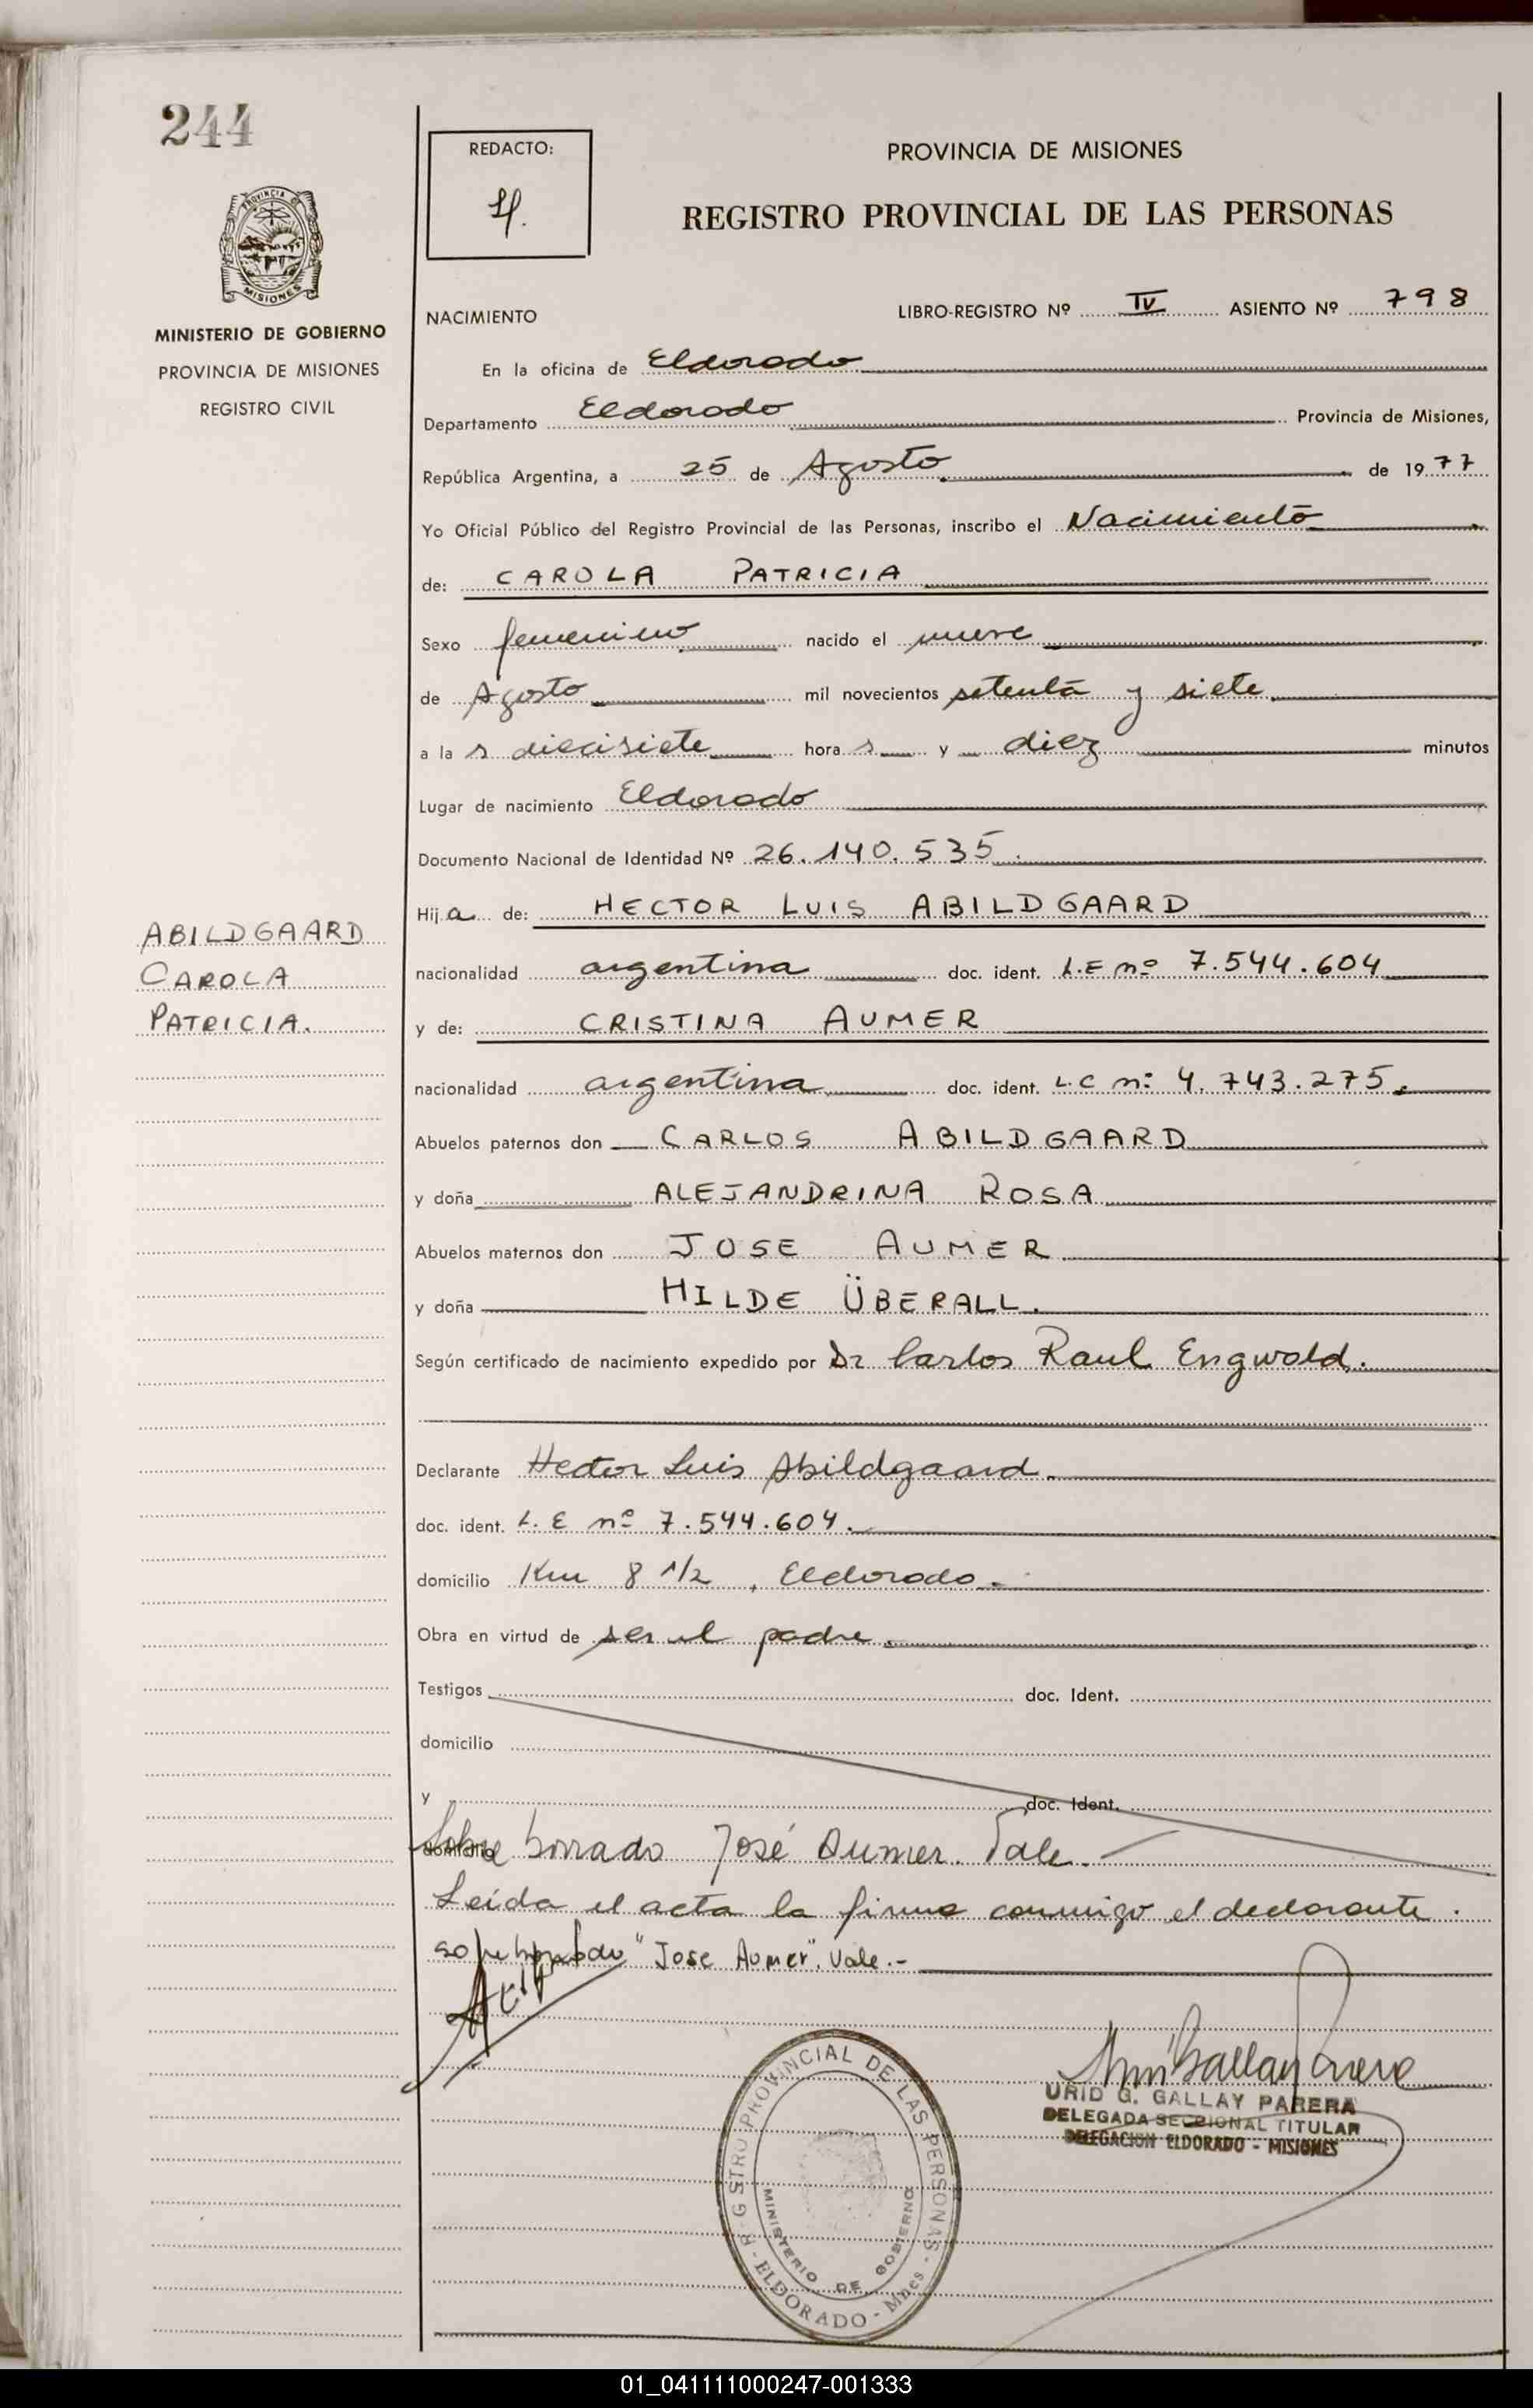 244
REDACTO:
PROVINCIA DE MISIONES
REGISTRO PROVINCIAL DE LAS PERSONAS
PROVINCIA DE
MISIONES
MINISTERIO DE GOBIERNO
PROVINCIA DE MISIONES
REGISTRO CIVIL
NACIMIENTO
LIBRO-REGISTRO Nº IV ASIENTO Nº 798
En la oficina de Eldorado
Departamento Eldorado Provincia de Misiones,
República Argentina, a 25 de Agosto de 1977
Yo Oficial Público del Registro Provincial de las Personas, inscribo el Nacimiento
de: CAROLA PATRICIA
Sexo femenino nacido el nueve
de Agosto mil novecientos setenta y siete
a las diecisiete horas y diez minutos
Lugar de nacimiento Eldorado
Documento Nacional de Identidad Nº 26.140.535.
Hija de: HECTOR LUIS ABILDGAARD
ABILDGAARD
CAROLA
PATRICIA.
nacionalidad argentina doc. ident. L.E nº 7.544.604
y de: CRISTINA AUMER
nacionalidad argentina doc. ident. L.C nº 4.743.275.
Abuelos paternos don CARLOS ABILDGAARD
y doña ALEJANDRINA ROSA
Abuelos maternos don JOSE AUMER
y doña HILDE ÜBERALL.
Según certificado de nacimiento expedido por Dr Carlos Raul Engwald.
Declarante Hector Luis Abildgaard.
doc. ident. L.E nº 7.544.604.
domicilio Km 8 1/2, Eldorado.
Obra en virtud de ser el padre.
Testigos doc. Ident.
domicilio
y doc. Ident.
domicilio
Sobre borrado José Aumer. Vale.
Leída el acta la firma conmigo el declarante.
"Jose Aumer". Vale.-
URID G. GALLAY PARERA
DELEGADA SECCIONAL TITULAR
DELEGACION ELDORADO - MISIONES
PROVINCIAL DE LAS PERSONAS - ELDORADO - Mnes -
MINISTERIO DE GOBIERNO
01_041111000247-001333